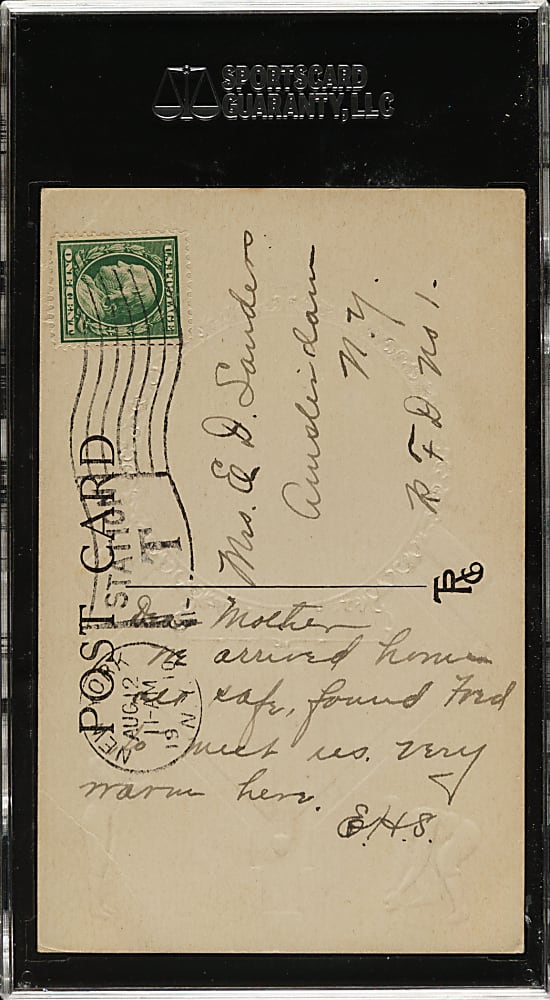 SPORTSCARD
GUARANTY, LLC
U.S. POSTAGE
ONE CENT
POST CARD
STATION
T
NEW YORK
AUG 12
11-
M
19
N.Y.
Mrs. E. D. Sanders
Amsterdam
N.Y.
R F D No 1.
Dear Mother
We arrived home
safe, found Fred
to meet us. Very
warm here.
E.H.S.